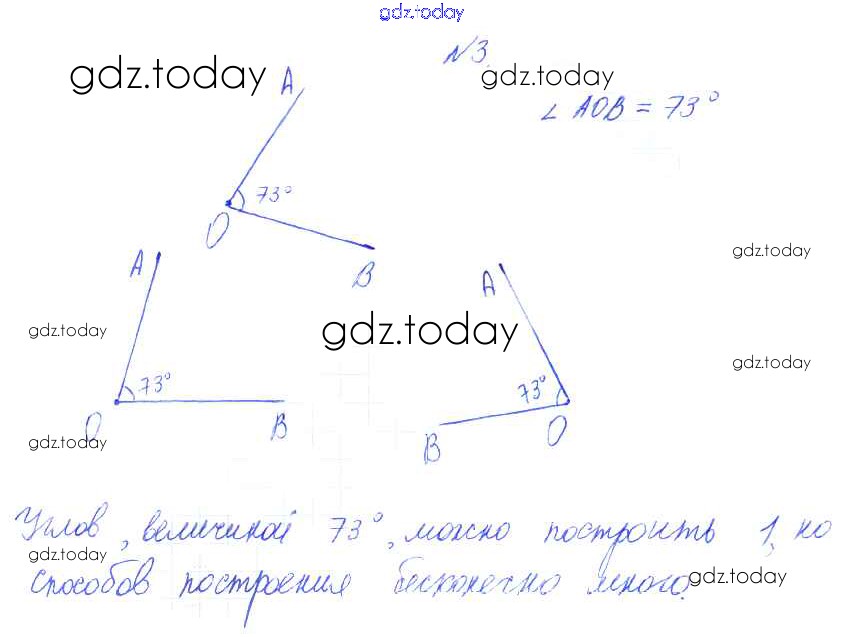 gdz.today
№3.
gdz.today
gdz.today
A
∠ AOB = 73°
73°
O
gdz.today
A
B
A
gdz.today
gdz.today
gdz.today
73°
73°
O
B
B
O
gdz.today
Углов, величиной 73°, можно построить 1, но
gdz.today
способов построения бесконечно много.
gdz.today